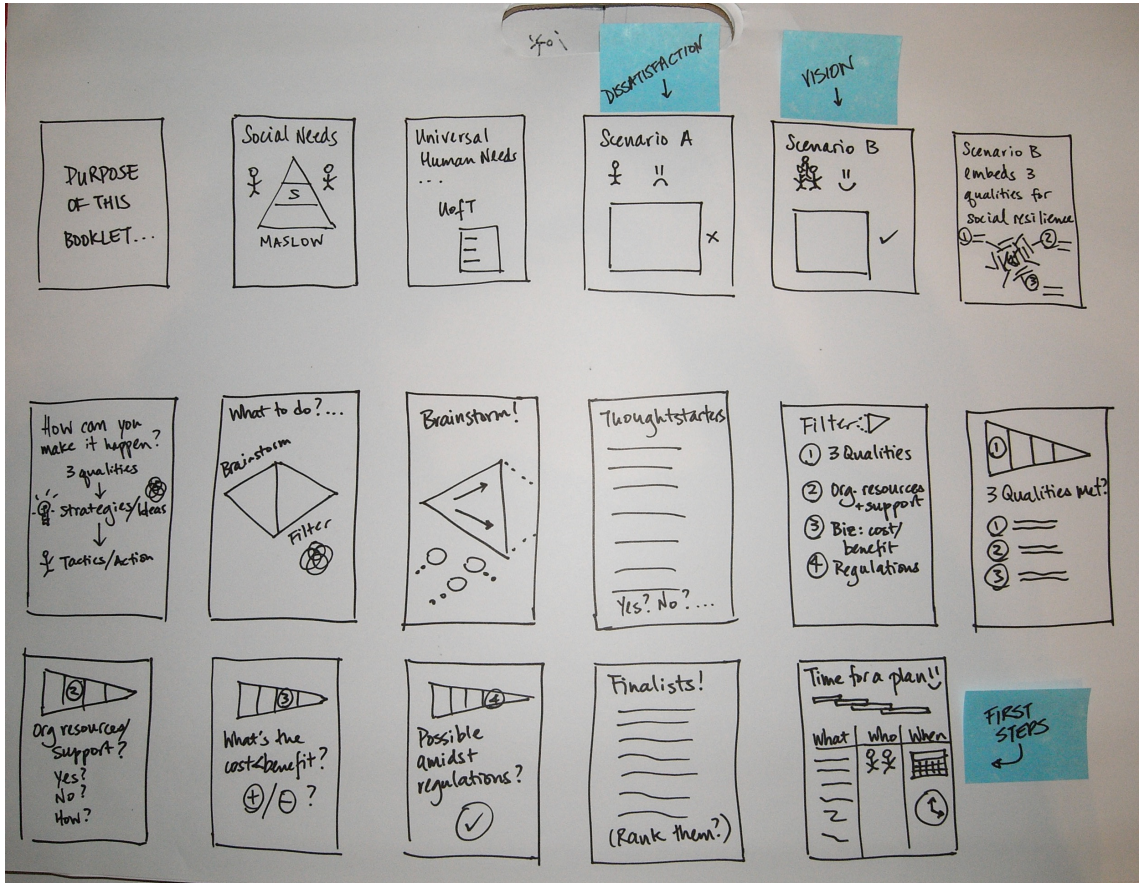 DISSATISFACTION
VISION
PURPOSE
OF THIS
BOOKLET...
Social Needs
S
MASLOW
Universal
Human Needs
...
UofT
Scenario A
x
Scenario B
✓
Scenario B
embeds 3
qualities for
social resilience
1
2
3
How can you
make it happen?
3 qualities
Strategies/Ideas
Tactics/Action
What to do?...
Brainstorm
Filter
Brainstorm!
Thoughtstarters
Yes? No?...
Filter:
1 3 Qualities
2 Org. resources
+ support
3 Biz: cost/
benefit
4 Regulations
1
3 Qualities met?
1
2
3
2
Org resources/
Support?
Yes?
No?
How?
3
What's the
cost<benefit?
+/- ?
4
Possible
amidst
regulations?
✓
Finalists!
(Rank them?)
Time for a plan!!
What Who When
FIRST
STEPS